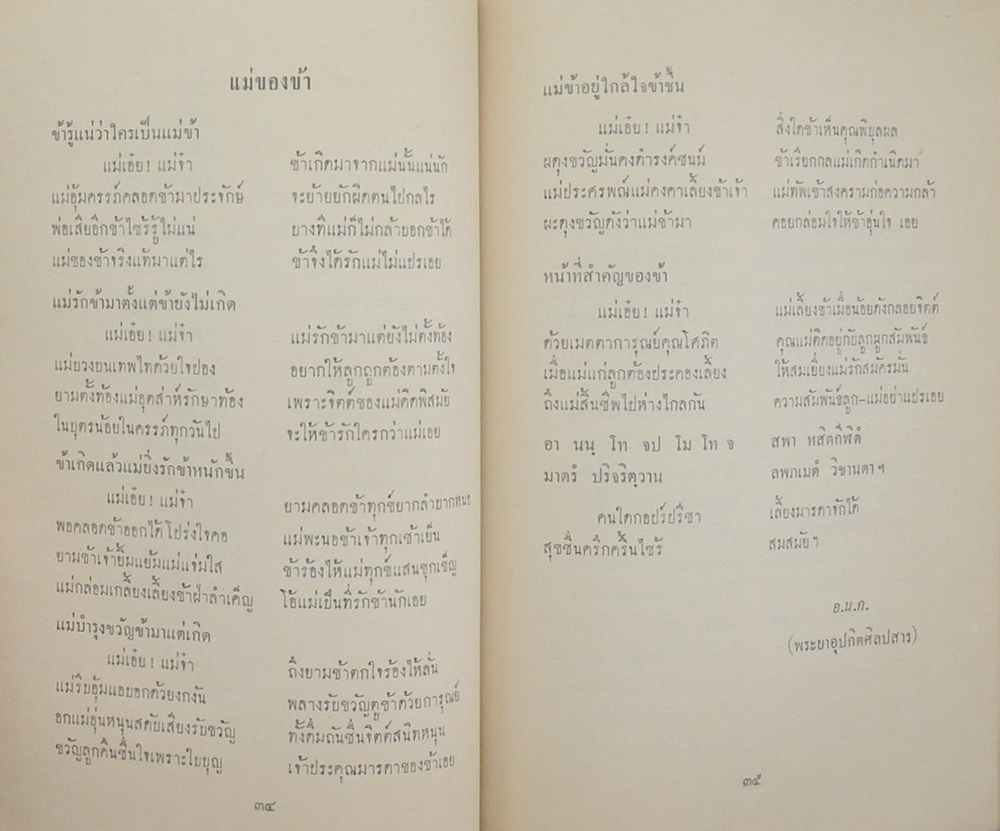 แม่ของข้า
ข้ารู้แน่ว่าใครเป็นแม่ข้า
แม่เอ๋ย! แม่จ๋า ข้าเกิดมาจากแม่นั้นแน่นัก
แม่อุ้มครรภ์คลอดข้ามาประจักษ์ จะย้ายยักผิดตนไปกลไร
พ่อเสียอีกข้าไซร้รู้ไม่แน่ บางทีแม่ก็ไม่กล้าบอกข้าได้
แม่ของข้าจริงแท้มาแต่ไร ข้าจึ่งได้รักแม่ไม่แปรเอย
แม่รักข้ามาตั้งแต่ข้ายังไม่เกิด
แม่เอ๋ย! แม่จ๋า แม่รักข้ามาแต่ยังไม่ตั้งท้อง
แม่บวงบนเทพไทด้วยใจปอง อยากให้ลูกถูกต้องตามตั้งใจ
ยามตั้งท้องแม่อุตส่าห์รักษาท้อง เพราะจิตต์ของแม่คิดพิสมัย
ในบุตรน้อยในครรภ์ทุกวันไป จะให้ข้ารักใครกว่าแม่เอย
ข้าเกิดแล้วแม่ยิ่งรักข้าหนักขึ้น
แม่เอ๋ย! แม่จ๋า ยามคลอดข้าทุกข์ยากลำบากหนอ
พอคลอดข้าออกได้โปร่งใจคอ แม่พะนอข้าเจ้าทุกเช้าเย็น
ยามข้าเจ้ายิ้มแย้มแม่แจ่มใส ข้าร้องไห้แม่ทุกข์แสนขุกเข็ญ
แม่กล่อมเกลี้ยงเลี้ยงข้าฝ่าลำเค็ญ โอ้แม่เป็นที่รักข้านักเอย
แม่บำรุงขวัญข้ามาแต่เกิด
แม่เอ๋ย! แม่จ๋า ถึงยามข้าตกใจร้องไห้ลั่น
แม่รีบอุ้มแอบอกด้วยงกงัน พลางรับขวัญตูข้าด้วยการุณย์
อกแม่อุ่นหนุนสดับเสียงรับขวัญ ทั้งดื่มถันชื่นจิตต์สนิทหนุน
ขวัญลูกคืนชื่นใจเพราะใบบุญ เจ้าประคุณมารดาของข้าเอย
๓๔
แม่ข้าอยู่ใกล้ใจข้าชื้น
แม่เอ๋ย! แม่จ๋า สิ่งใดข้าเห็นคุณพิบุลผล
ผดุงขวัญมั่นคงดำรงค์ชนม์ ข้าเรียกกลแม่เกิดกำเนิดมา
แม่ประศรพณ์แม่คงคาเลี้ยงข้าเจ้า แม่ทัพเข้าสงครามก่อความกล้า
ผะดุงขวัญดังว่าแม่ข้ามา คอยกล่อมใจให้ข้าอุ่นใจ เอย
หน้าที่สำคัญของข้า
แม่เอ๋ย! แม่จ๋า แม่เลี้ยงข้าเมื่อน้อยดังกลอยจิตต์
ด้วยเมตตาการุณย์คุณโศภิต คุณแม่ติดอยู่กับลูกผูกสัมพันธ์
เมื่อแม่แก่ลูกต้องประคองเลี้ยง ให้สมเยี่ยงแม่รักสมัครมั่น
ถึงแม่สิ้นชีพไปห่างไกลกัน ความสัมพันธ์ลูก-แม่อย่าแปรเอย
อา นนฺ โท จป โม โท จ สพา หสิตกีฬิตํ
มาตรํ ปริจริตฺวาน ลพภเมตํ วิชานตาฯ
คนใดกอปร์ปรีชา เลี้ยงมารดารักได้
สุขชื่นคริกครื้นไซร้ สมสมัยฯ
อ.น.ก.
(พระยาอุปกิตศิลปสาร)
๓๕